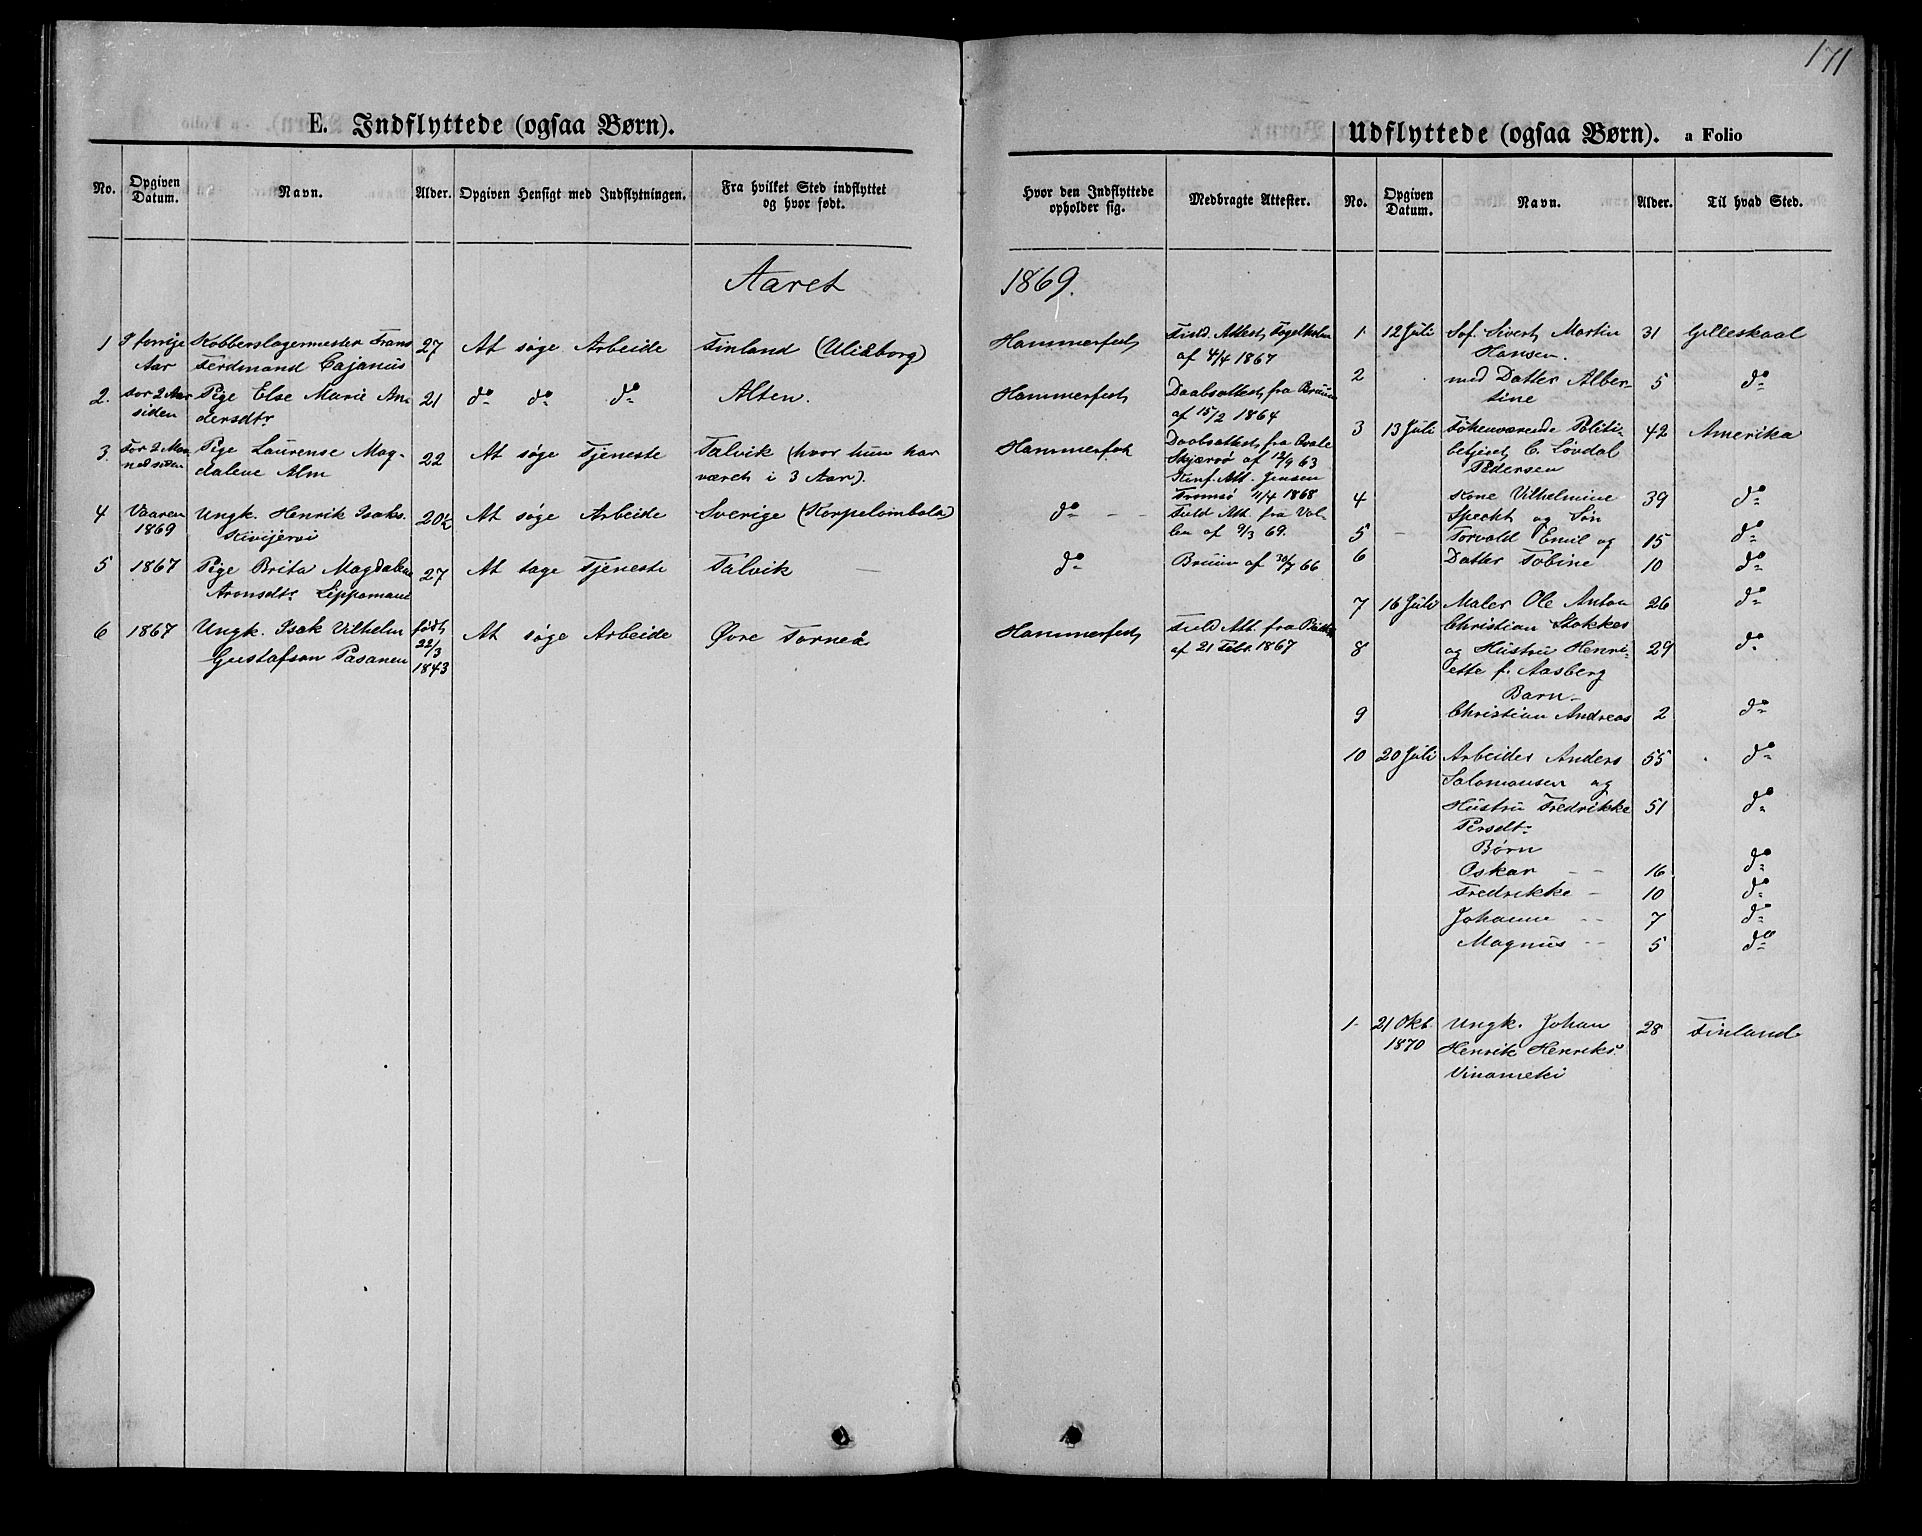 171
E. Indflyttede (ogsaa Børn).
No. Opgiven Datum. Navn. Alder. Opgiven Hensigt med Indflytningen. Fra hvilket Sted indflyttet og hvor født. Hvor den Indflyttede opholder sig. Medbragte Attester.
Aaret 1869.
1 I forrige Kobberslagermester Frans 27 At søge Arbeide Finland (Uliåborg) Hammerfest
Aar Ferdinand Cajanus af 4/4 1867
2. For 2 Aar Pige Else Marie An- 21 do do do Alten. Hammerfest Daabsattest fra Bruun
siden dersdtr af 15/2 1864
3. For 2 Maa- Pige Laurense Mag- 22 At søge Tjeneste Talvik (hvor hun har Hammerfest Daabsattest fra
ned siden dalene Alm været i 3 Aar). Skjærvø af 12/9 63
Konf. Att. Jensen
Tromsø 11/4 1868
4 Vaaren Ungk. Henrik Isaks. 20½ At søge Arbeide Sverige (Korpelombola) do Fuld Att. fra
1869 Kivijervi af 9/3 69.
5 1867 Pige Brita Magdalene 27 At tage Tjeneste Talvik — do Bruun af 30/7 66
Aronsdtr Lippomane
6 1867 Ungk. Isak Vilhelm født At søge Arbeide Øvre Torneå Hammerfest Fuld Att. fra
Gustafson Pasanen 22/3 af 21 Febr. 1867
1843
Udflyttede (ogsaa Børn). a Folio
No. Opgiven Datum. Navn. Alder. Til hvad Sted.
1 12 Juli Sof. Sivert Martin 31 Gilleskaal
Hansen.
2 med Datter Alber- 5 do
tine
3 13 Juli Fhvenværende Politi- 42 Amerika
betjent C. Løvdal
Pedersen
4 Kone Vilhelmine 39 do
Specht og Søn
5 - Torvald Emil og 15 do
6 Datter Tobine 10 do
7 16 Juli Maler Ole Anton 26 do
Christian Stokkes
8 og Hustru Henri- 29 do
ette f. Aasberg
Barn
9 Christian Andreas 2 do
10 20 Juli Arbeider Anders 55 do
Salomonsen og
Hustru Fredrikke 51 do
Persdt.
Børn
Oskar - - 16 do
Fredrikke - 10 do
Johanne - - 7 do
Magnus - - 5 do
1 21 Okt. Ungk. Johan 28 Finland
1870 Henrik Henriks.
Vinameki